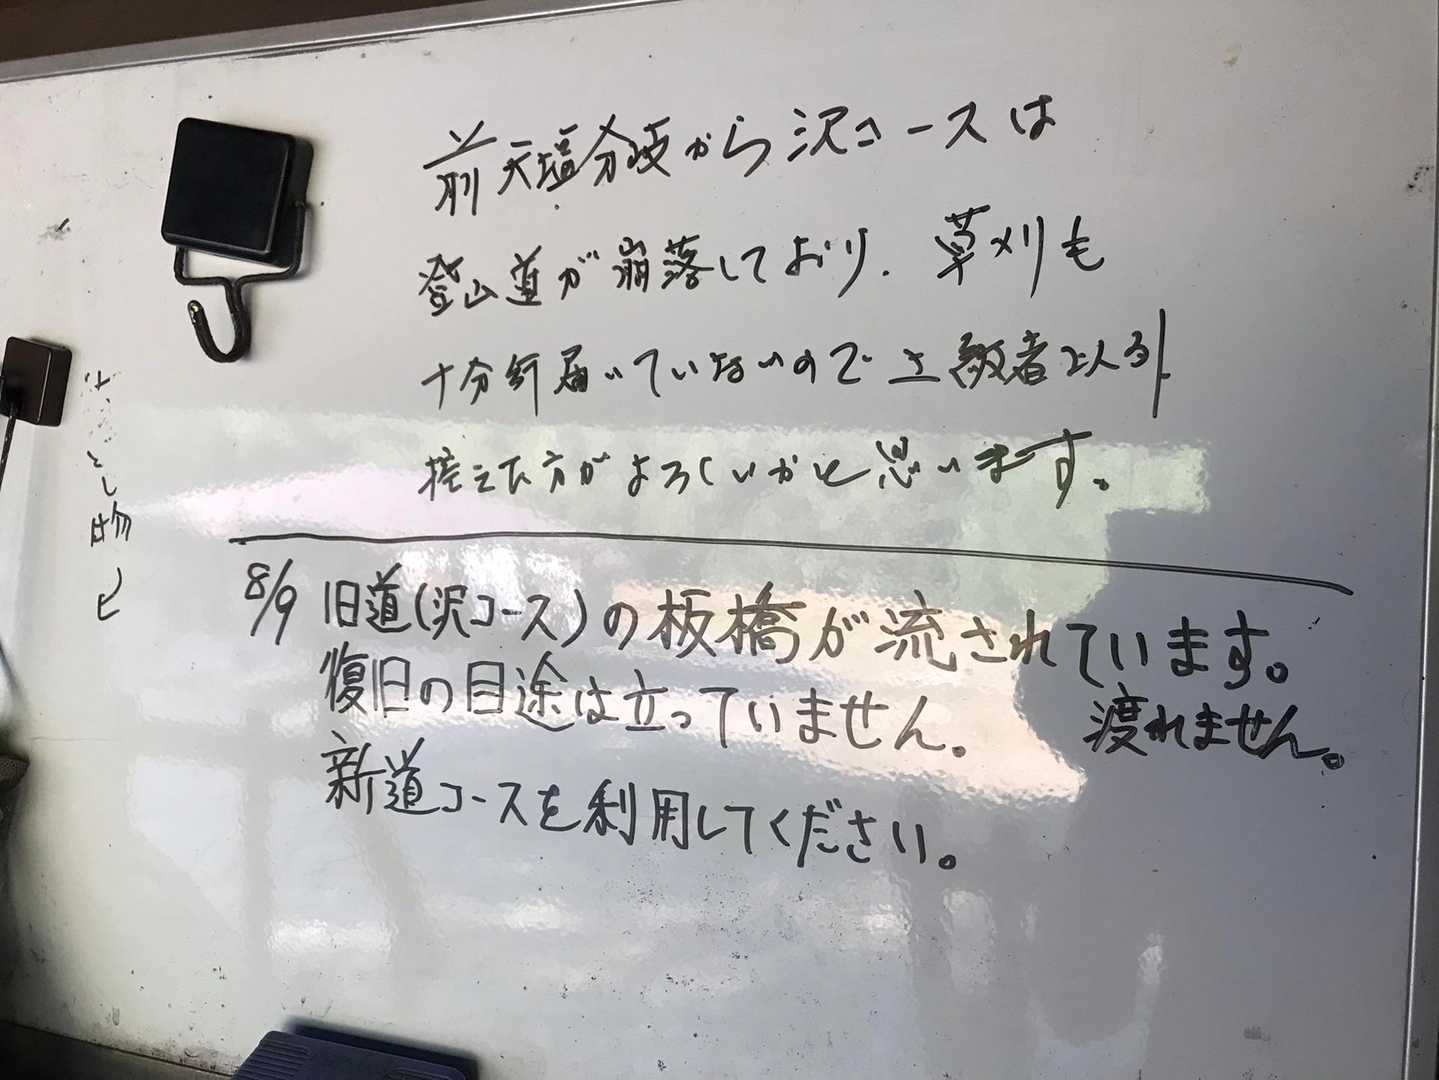 前天塩分岐から沢コースは
登山道が崩落しており、草刈も
十分行届いていないので上級者以外
控えた方がよろしいかと思います。
8/9 旧道(沢コース)の板橋が流されています。
復旧の目途は立っていません。 渡れません。
新道コースを利用してください。